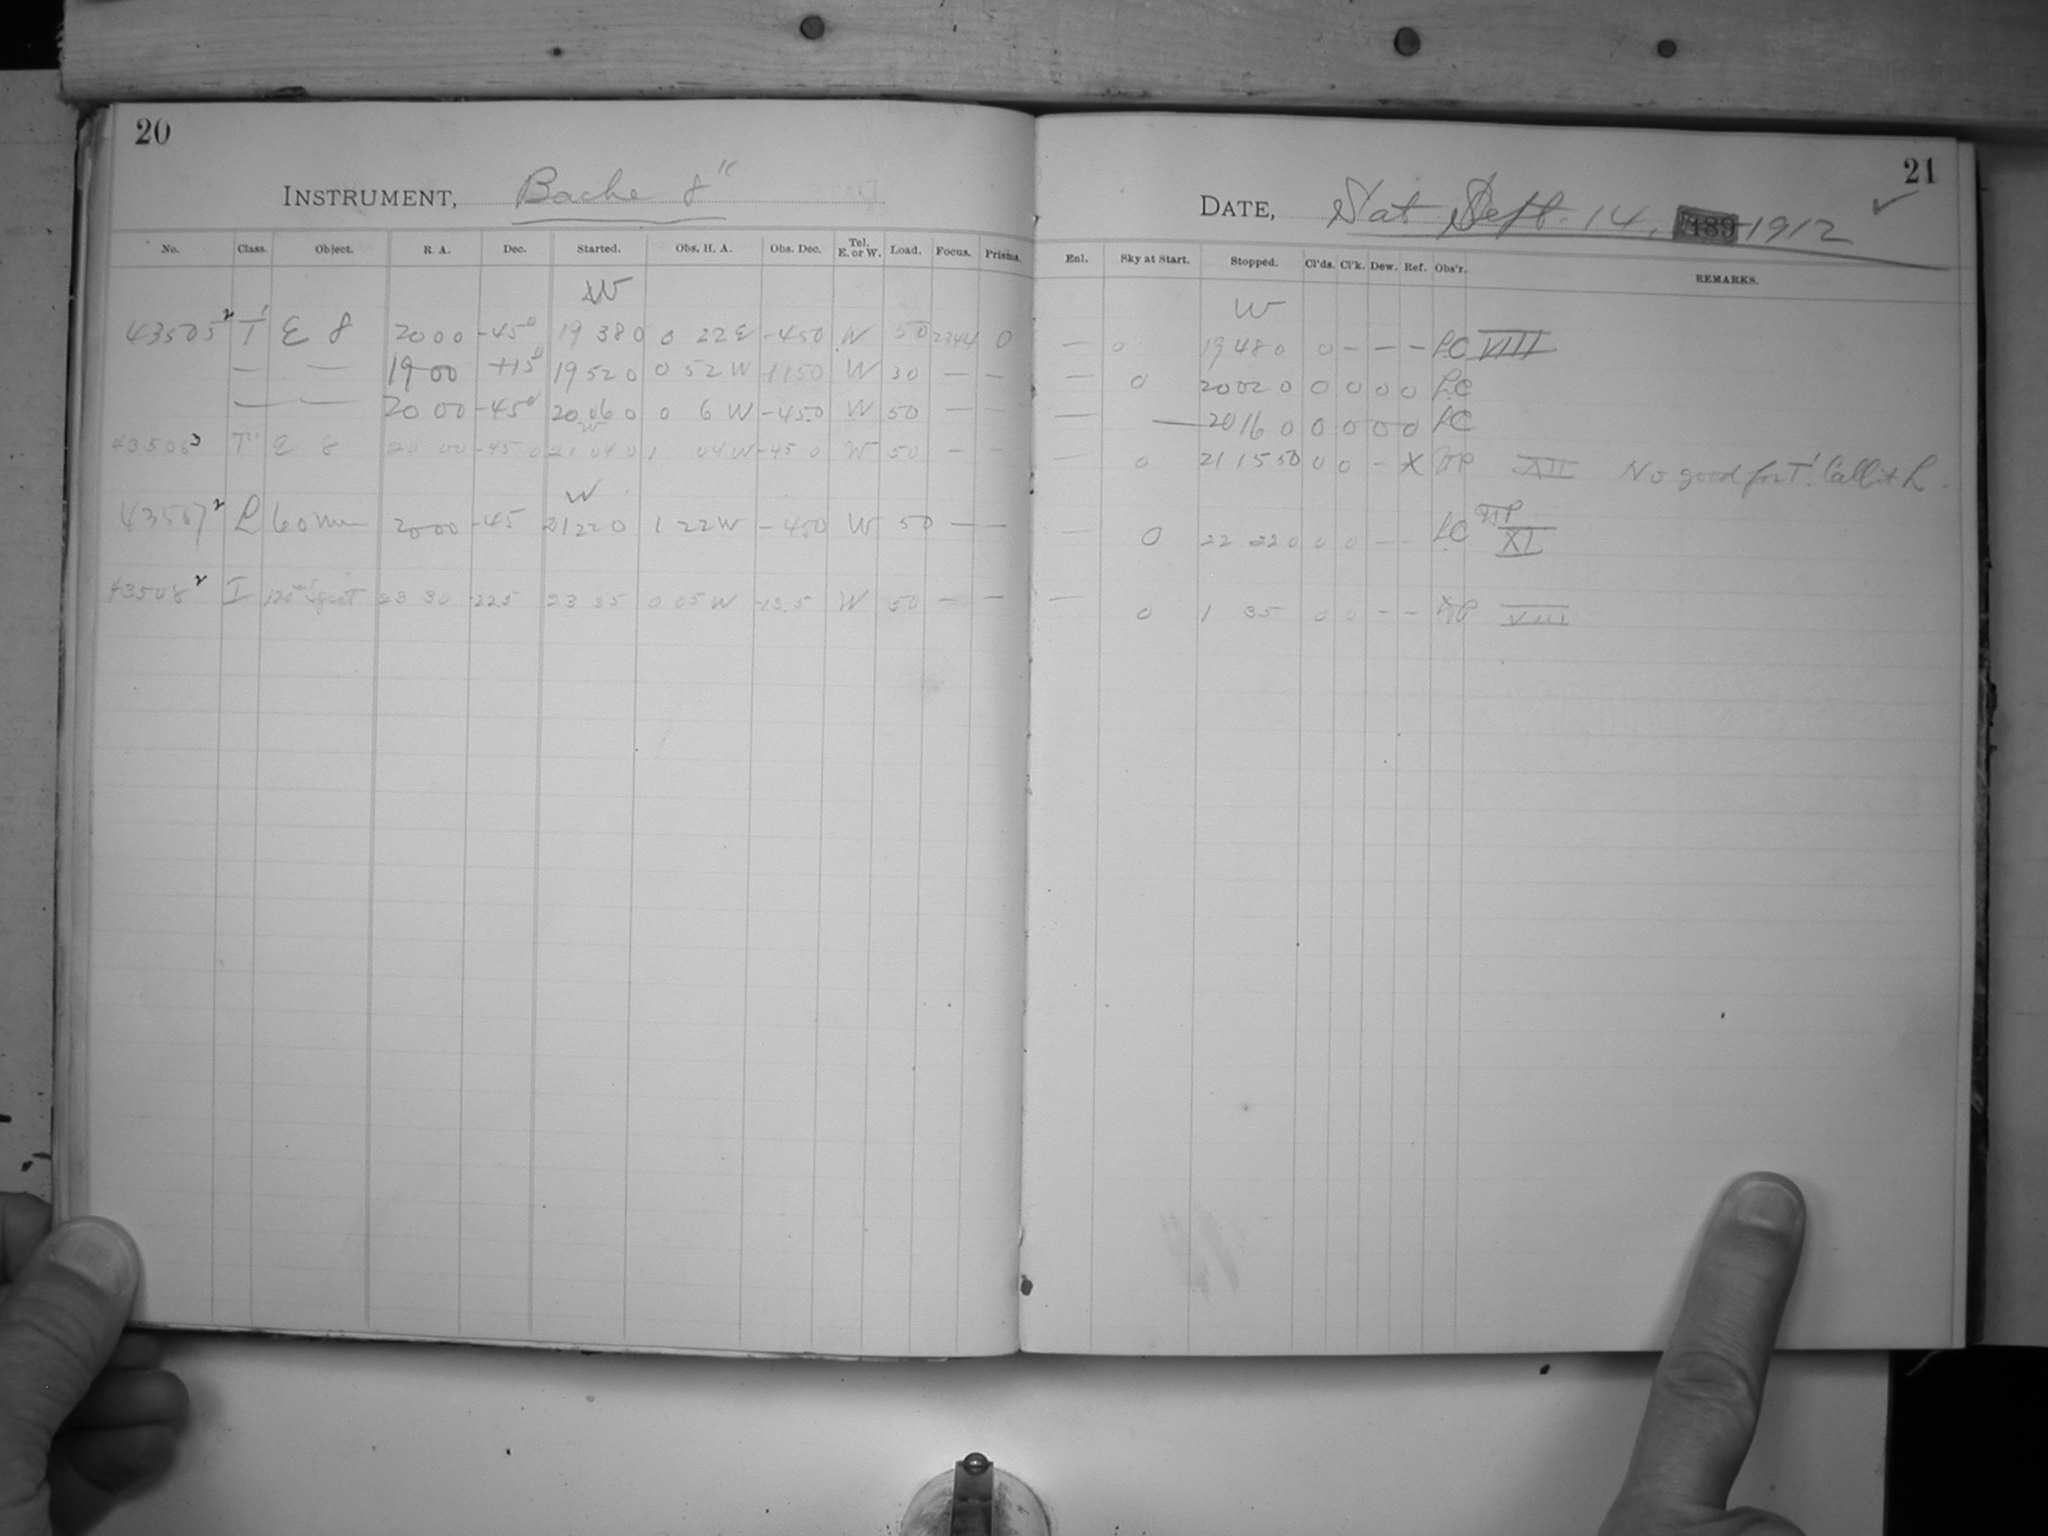 20
INSTRUMENT, Bache 8"
No. Class. Object. R. A. Dec. Started. Obs. H. A. Obs. Dec. Tel. E. or W. Load. Focus. Prisms.
W
43505 2 T' E 8 20 00 -45 0 19 38 0 0 22 E -45 0 W 50 2344 0
— — 19 00 +15 0 19 52 0 0 52 W +15 0 W 30 — —
— — 20 00 -45 0 20 06 0 0 6 W -45 0 W 50 — —
W
43506 3 T" E 8 20 00 -45 0 21 04 0 1 04 W -45 0 W 50 — —
W
43507 2 L 60 min 20 00 -45 21 22 0 1 22 W -45 0 W 50 — —
43508 2 I 120m 23 30 -22.5 23 35 0 05 W W 50 — —
21
DATE, Sat Sept. 14, 189 1912 ✓
Enl. Sky at Start. Stopped. Cl'ds. Cl'k. Dew. Ref. Obs'r. REMARKS.
W
— 0 19 48 0 0 — — — LC VIII
— 0 20 02 0 0 0 0 0 LC
— — 20 16 0 0 0 0 0 LC
— 0 21 15 50 0 0 — X XII No good for T'. Call it L.
— 0 22 22 0 0 0 — — LC XI
— 0 1 35 0 0 — — VIII